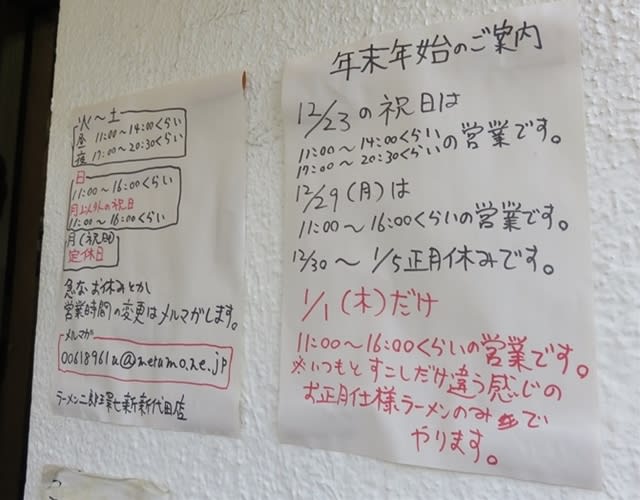 火〜土
昼 11:00〜14:00くらい
夜 17:00〜20:30くらい
日
11:00〜16:00くらい
月以外の祝日
11:00〜16:00くらい
月(祝日)
定休日
急なお休みとか
営業時間の変更はメルマガします。
メルマガ
00618961u@merumo.ne.jp
ラーメン二郎環七新新代田店
年末年始のご案内
12/23の祝日は
11:00〜14:00くらい
17:00〜20:30くらいの営業です。
12/29(月)は
11:00〜16:00くらいの営業です。
12/30〜1/5正月休みです。
1/1(木)だけ
11:00〜16:00くらいの営業です。
※いつもとすこしだけ違う感じの
お正月仕様ラーメンのみで
やります。